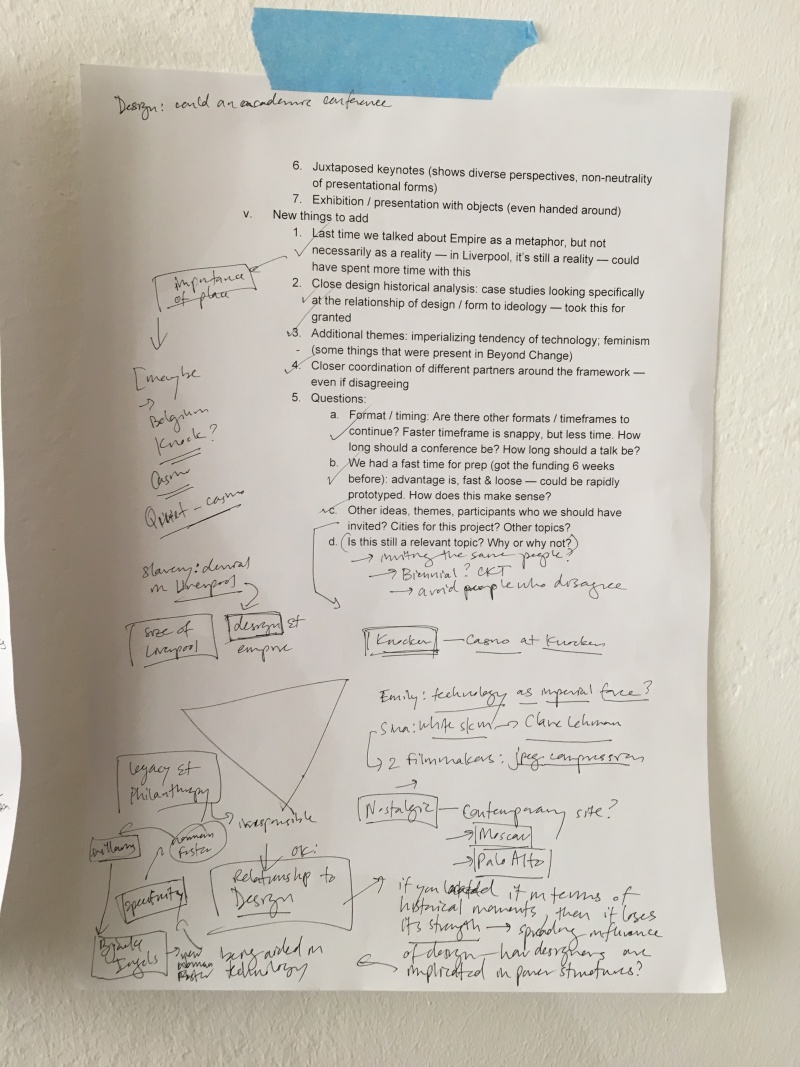 Design: could an academic conference
6. Juxtaposed keynotes (shows diverse perspectives, non-neutrality
of presentational forms)
7. Exhibition / presentation with objects (even handed around)
v. New things to add
1. Last time we talked about Empire as a metaphor, but not
necessarily as a reality — in Liverpool, it's still a reality — could
have spent more time with this
2. Close design historical analysis: case studies looking specifically
at the relationship of design / form to ideology — took this for
granted
3. Additional themes: imperializing tendency of technology; feminism
- (some things that were present in Beyond Change)
4. Closer coordination of different partners around the framework —
even if disagreeing
5. Questions:
a. Format / timing: Are there other formats / timeframes to
continue? Faster timeframe is snappy, but less time. How
long should a conference be? How long should a talk be?
b. We had a fast time for prep (got the funding 6 weeks
before): advantage is, fast & loose — could be rapidly
prototyped. How does this make sense?
c. Other ideas, themes, participants who we should have
invited? Cities for this project? Other topics?
d. (Is this still a relevant topic? Why or why not?)
→ inviting the same people?
→ Biennial? CKT
→ avoid people who disagree
importance
of place
[maybe
→
Belgium
Knock?
Casino
– casino
slavery: denial
in Liverpool
size of
Liverpool
design &
empire
Knocker — Casino at Knocker
Emily: technology as imperial force?
white skin → Clare Lehman
→ 2 filmmakers: jpeg compression
→
Nostalgic — Contemporary site?
→ Moscow
→ Palo Alto
legacy &
Philanthropy
→ irresponsible
norman
foster
military
specificity
Bjarke
Ingels
→ new
norman
foster
OK:
Relationship to
Design
being aided in
technology
if you located it in terms of
historical moments, then it loses
its strength → spreading influence
of design — how designers are
implicated in power structures?